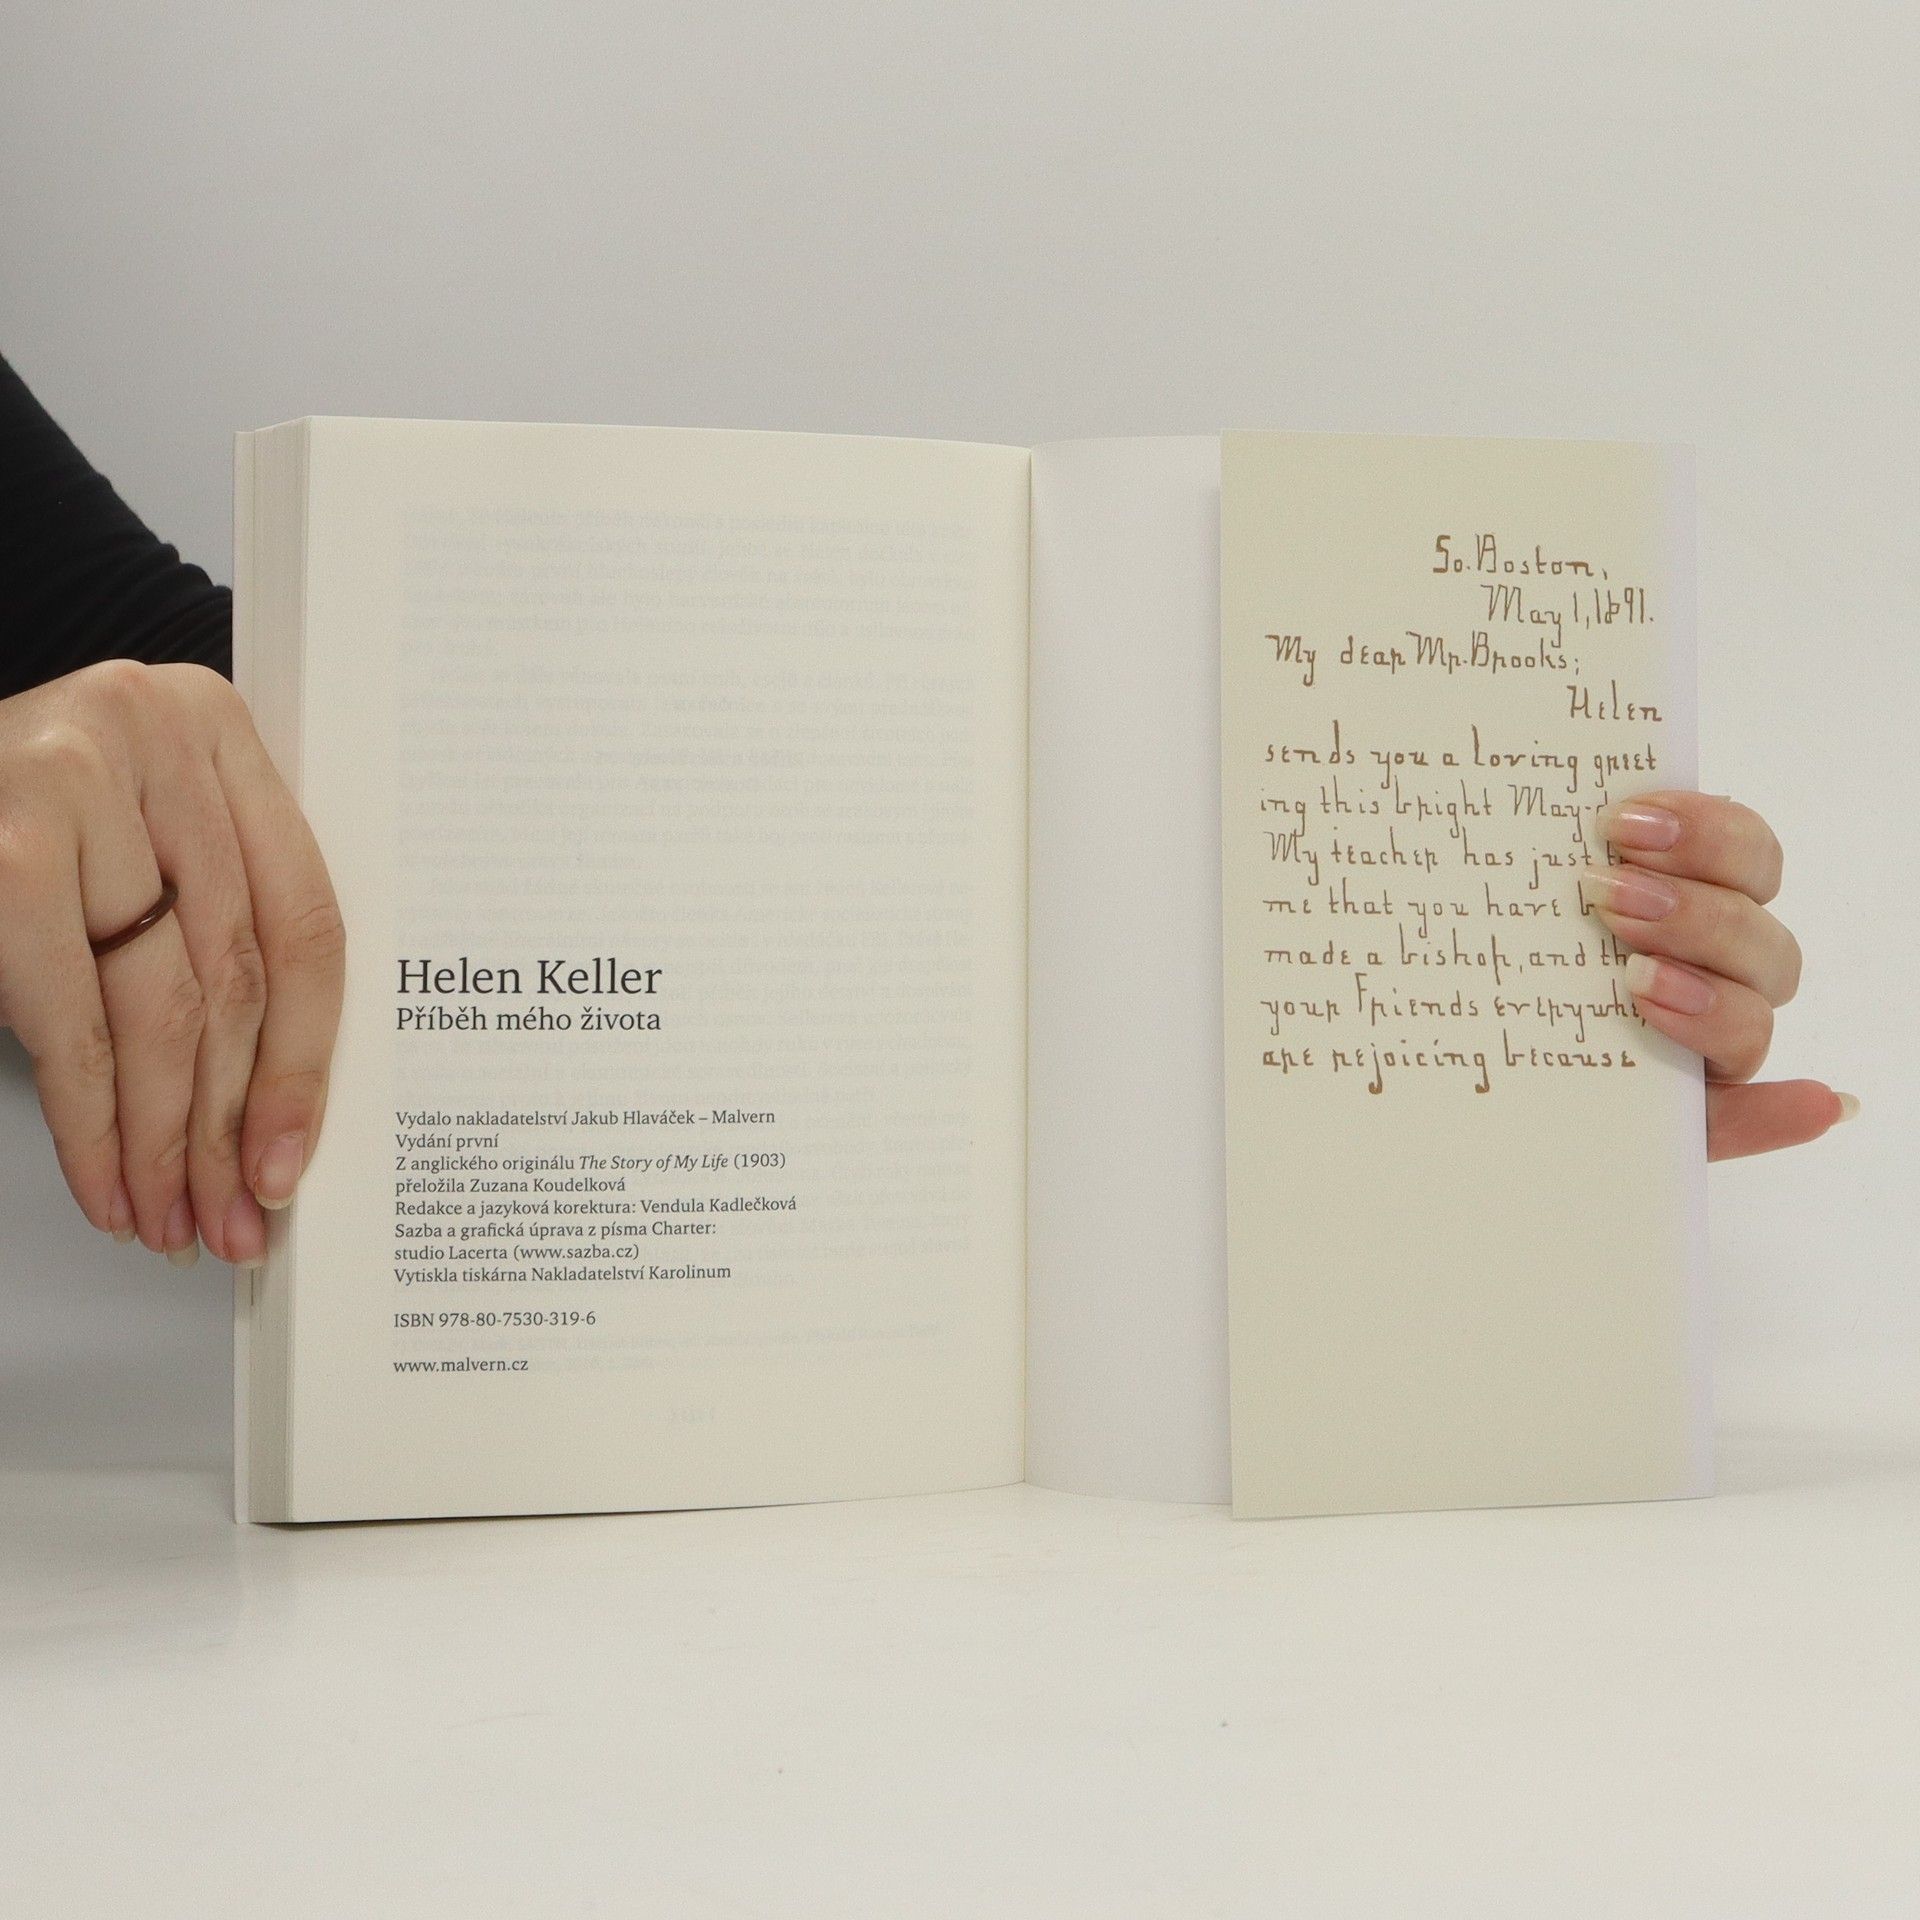 Helen Keller
Příběh mého života
Vydalo nakladatelství Jakub Hlaváček – Malvern
Vydání první
Z anglického originálu The Story of My Life (1903)
přeložila Zuzana Koudelková
Redakce a jazyková korektura: Vendula Kadlečková
Sazba a grafická úprava z písma Charter:
studio Lacerta (www.sazba.cz)
Vytiskla tiskárna Nakladatelství Karolinum
ISBN 978-80-7530-319-6
www.malvern.cz
So. Boston,
May 1, 1891.
My dear Mr. Brooks;
Helen
sends you a loving greet
ing this bright May-
My teacher has just
me that you have
made a bishop, and
your friends
are rejoicing because